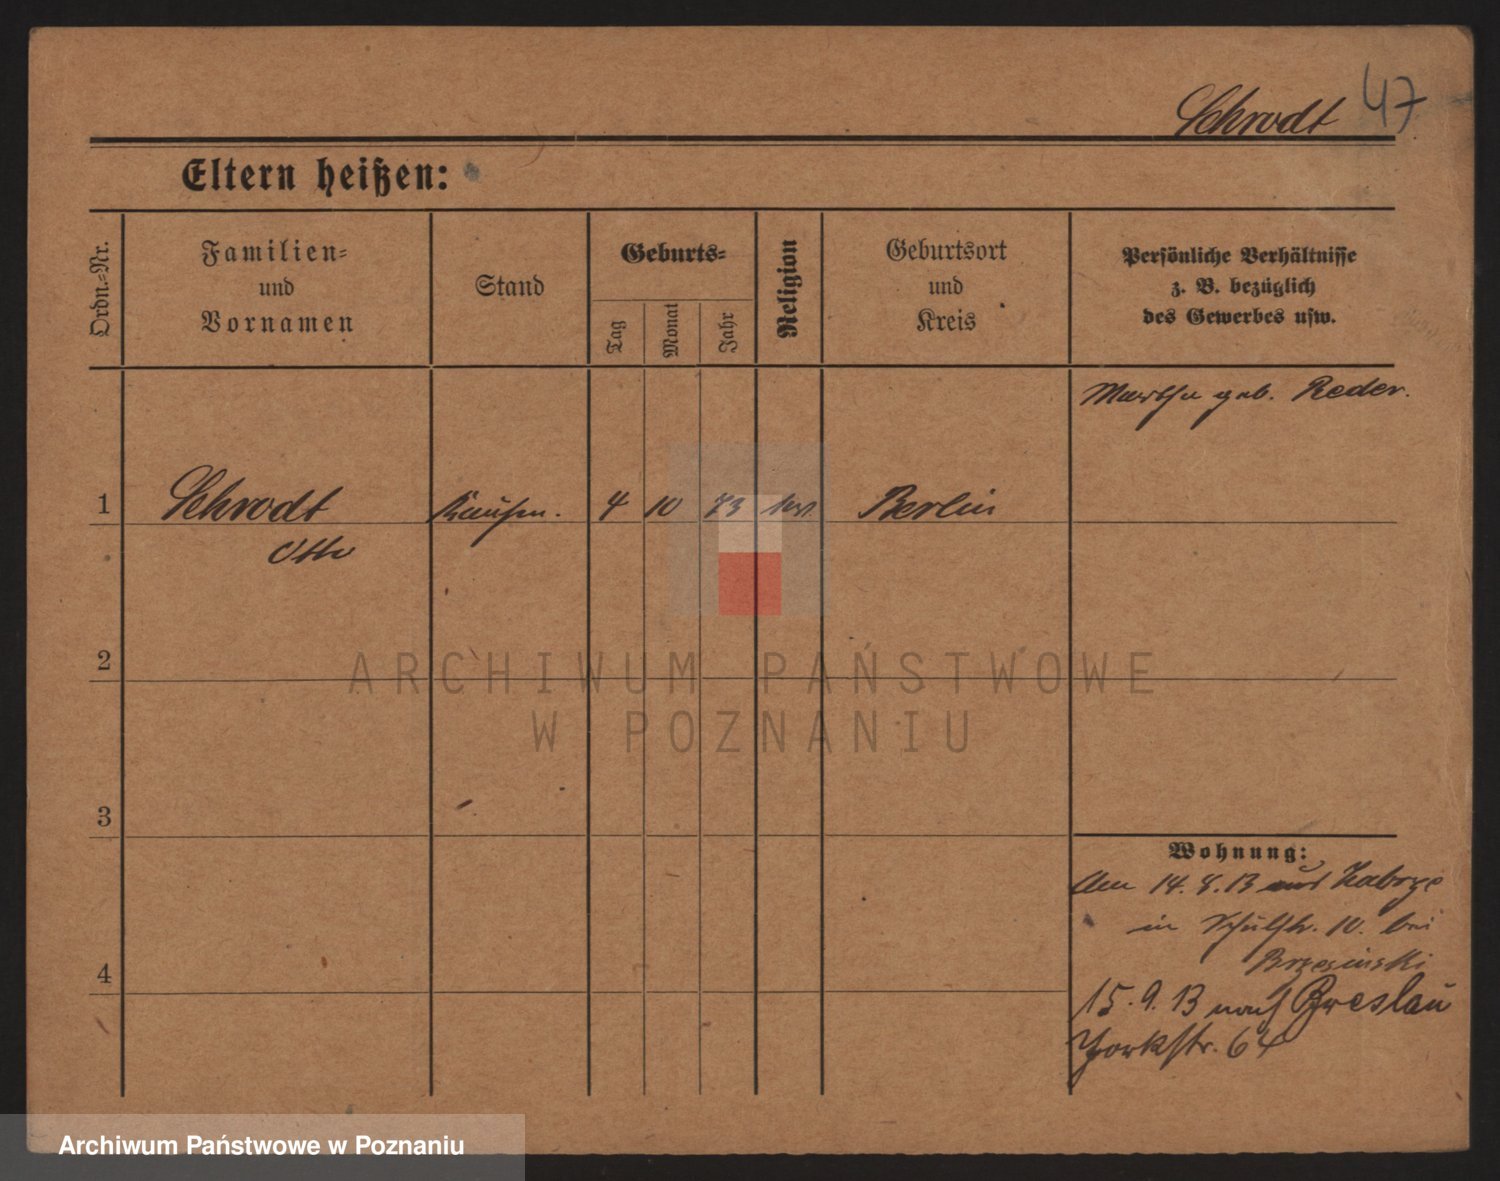 Schrodt 47
Eltern heißen:
Ordn.-Nr.
Familien-
und
Vornamen
Stand
Geburts-
Tag
Monat
Jahr
Religion
Geburtsort
und
Kreis
Persönliche Verhältnisse
z. B. bezüglich
des Gewerbes usw.
Martha geb. Reder.
1 Schrodt 4 10 73 Berlin
Otto
2
3
4
Wohnung:
Am 14.8.13 aus Zabrze
in Schulstr. 10. bei
Brzesinski
15.9.13 nach Breslau
Yorkstr. 64
ARCHIWUM PAŃSTWOWE
W POZNANIU
Archiwum Państwowe w Poznaniu